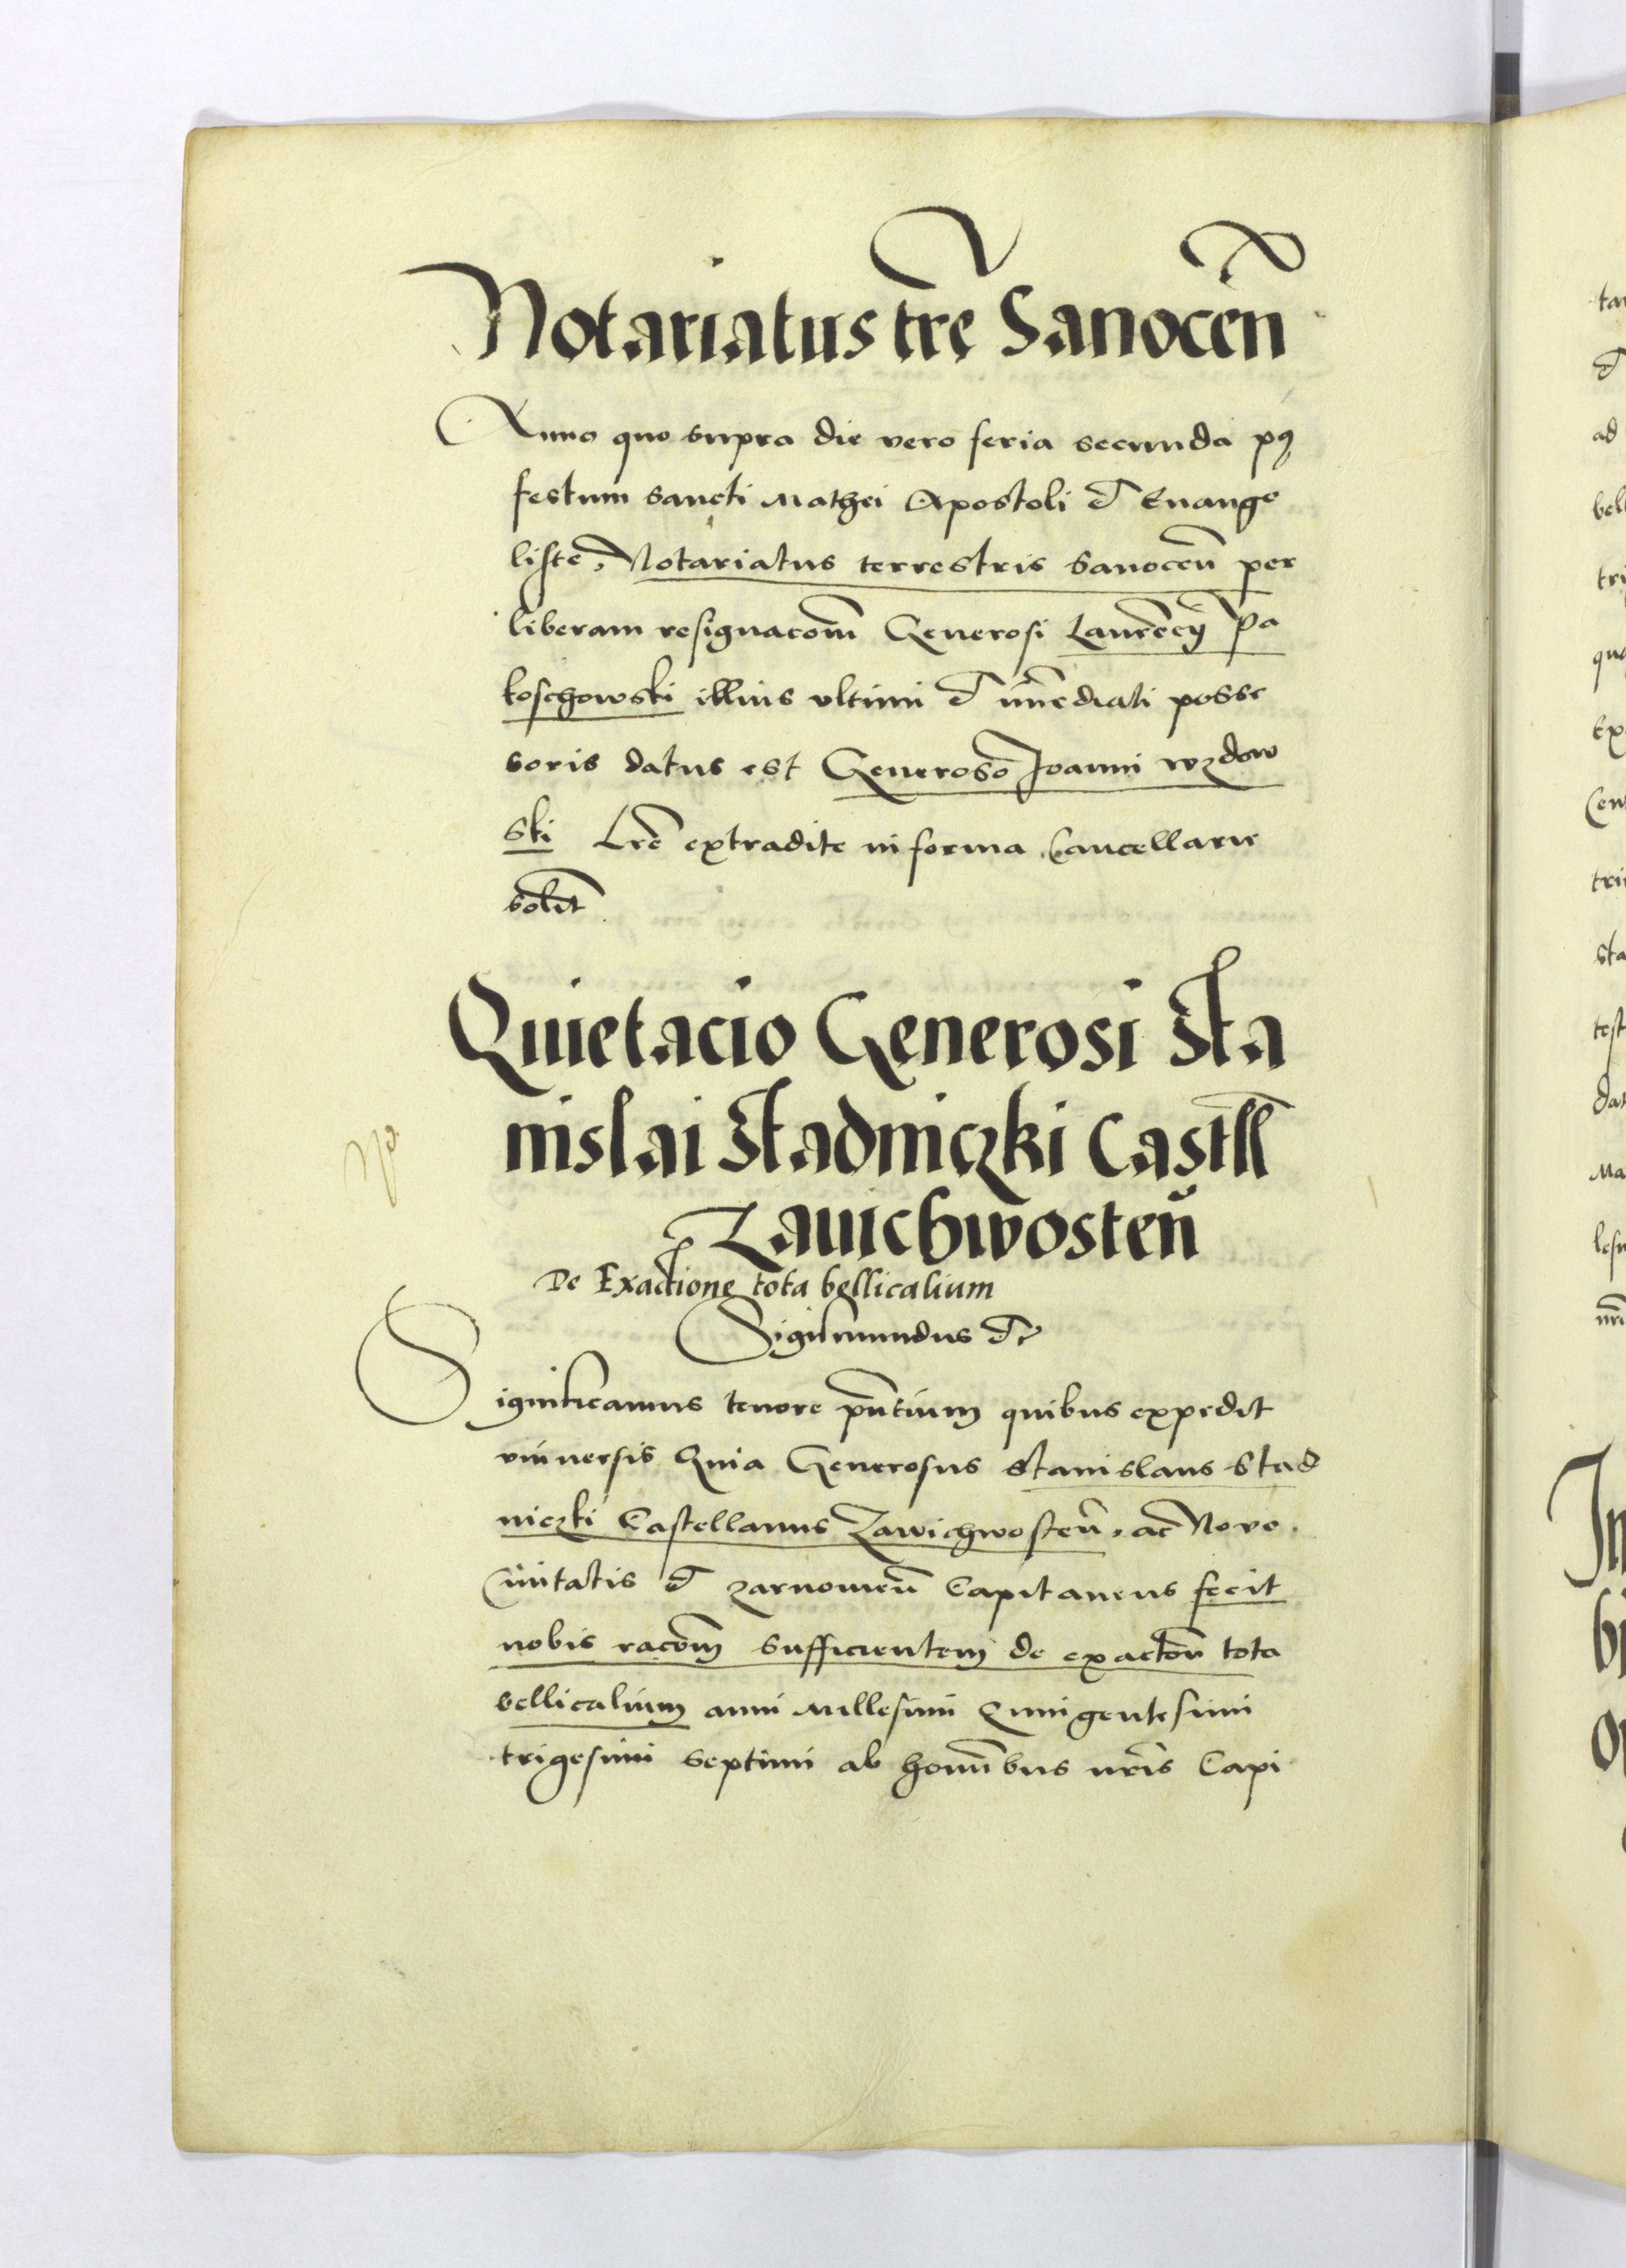 Notariatus tre Sanocen
Anno quo supra die vero feria secunda pꝯ
festum sancti Mathei Apostoli et Euange
liste, Notariatus terrestris Sanocen per
liberam resignacom Generosi Laurecij Pa
koschowski illius vltimi et imediati posse
soris datus est Generoso Joanni Wzdow
ski Lre extradite in forma Cancellarie
solit
Quietacio Generosi Sta
nislai Stadniczki Castll
Zauichwosten
De Exactione tota bellicalium
Sigismundus etc
Significamus tenore pntium quibus expedit
vniuersis Quia Generosus Stanislaus Stad
niczki Castellanus Zawichwosten, ac Nove
Ciuitatis et Zarnowien Capitaneus fecit
nobis racom sufficientem de exacton tota
bellicalium anni Millesimi Quingentesimi
trigesimi septimi ab hominibus nris Capi